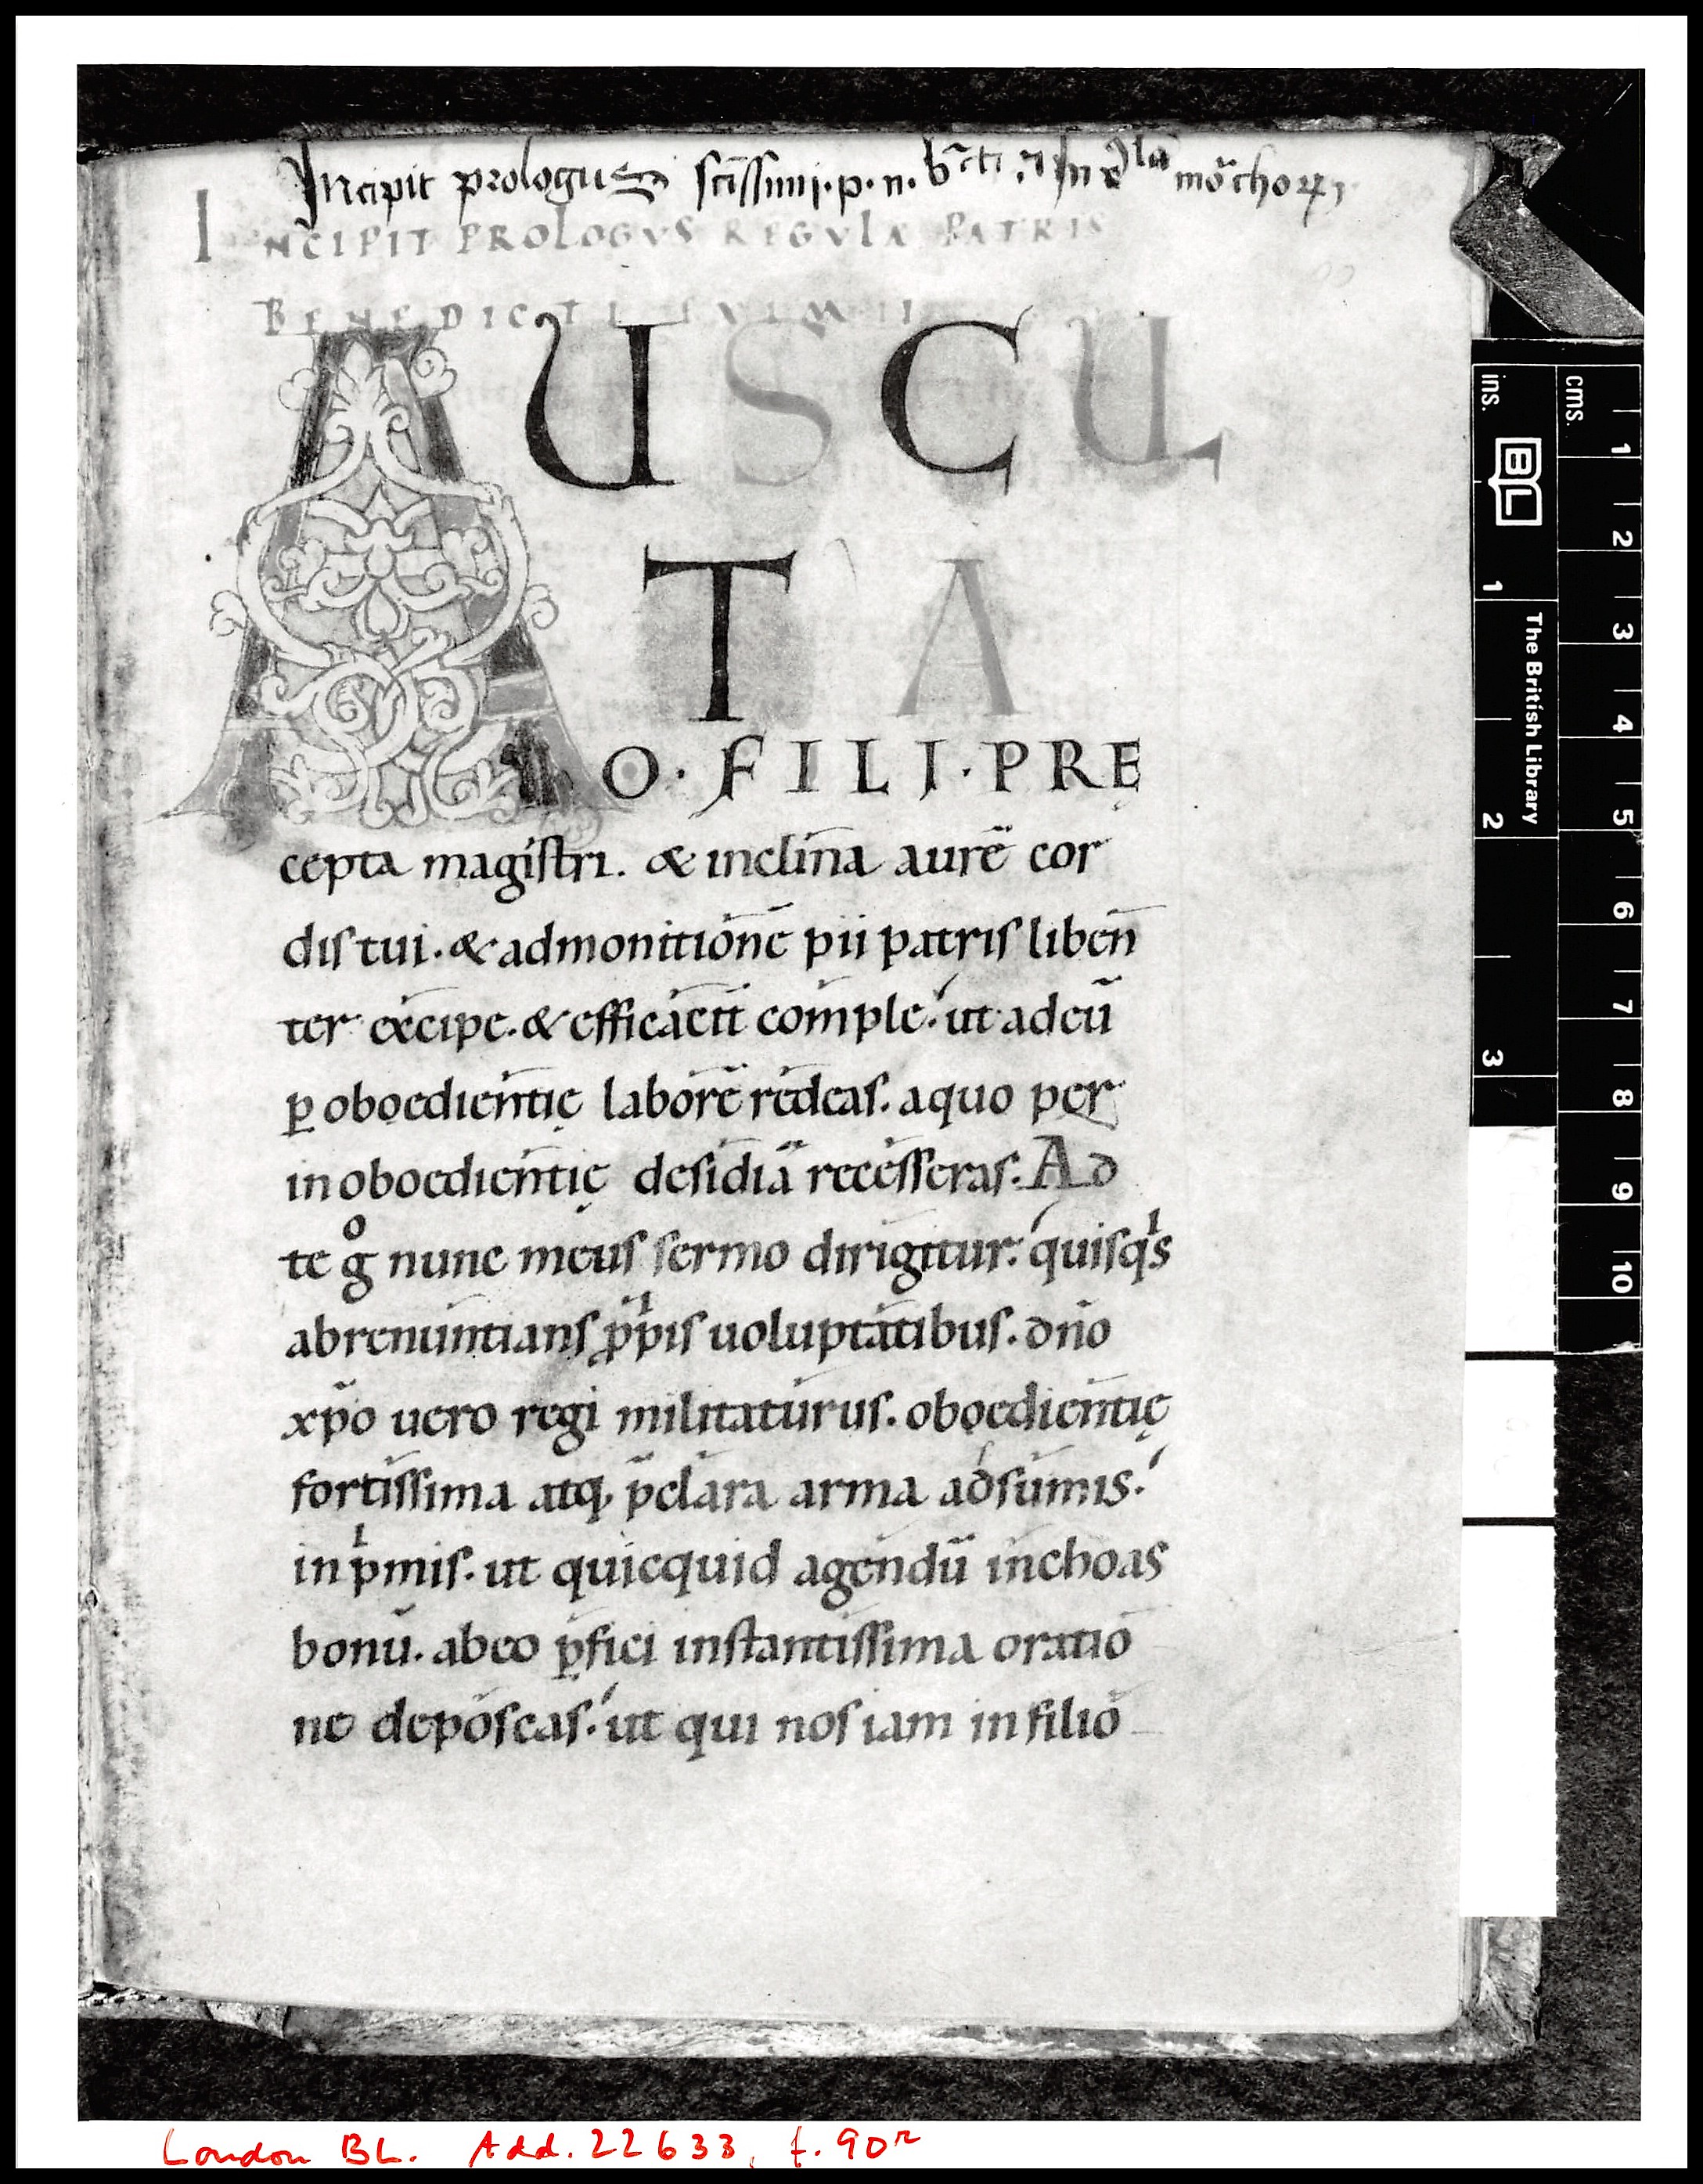 Incipit prologus scissimi · p · n · bcti
INCIPIT PROLOGVS REGVLAE PATRIS
BENEDICTI
AUSCU
TA
O · FILI · PRĘ
cepta magistri. & inclina aurē cor
dis tui. & admonitionē pii patris liben
ter excipe. & efficacit̄ comple. ut adeū
ꝑ oboedientię laborē redeas. aquo per
inoboedientię desidiā recesseras. Ad
te gͦ nunc meus sermo dirigitur. quisqͥs
abrenuntians ꝓpͥis uoluptatibus. dn̄o
xp̄o uero regi militaturus. oboedientię
fortissima atq; p̄clara arma adsumis.
inpͥmis. ut quicquid agendū inchoas
bonū. abeo ꝑfici instantissima oratio
ne deposcas. ut qui nos iam in filio
ins.
1
2
3
cms.
1
2
3
4
5
6
7
8
9
10
BL
The British Library
London BL. Add. 22633, f. 90r